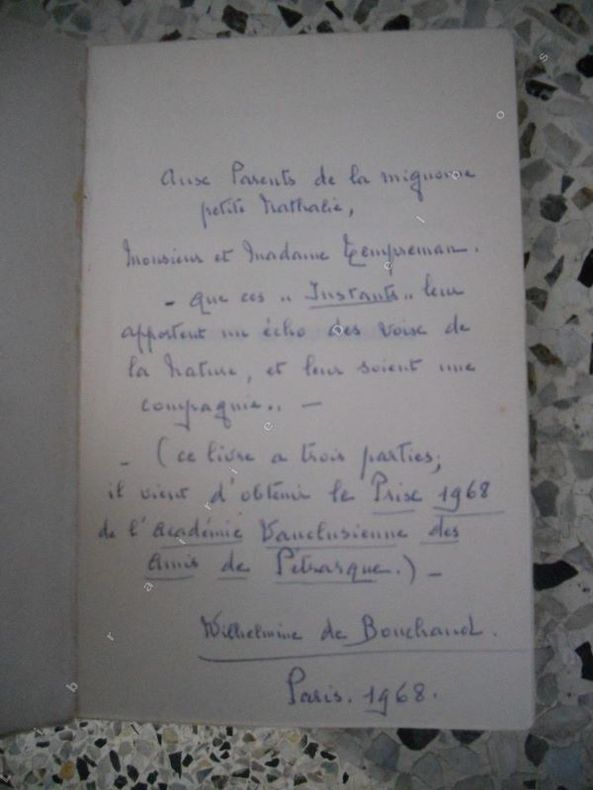 Aux Parents de la mignonne
petite Nathalie,
Monsieur et Madame Tempreman.
- que ces " Instants " leur
apportent un écho des voix de
la Nature, et leur soient une
compagnie.. —
- (ce livre a trois parties;
il vient d'obtenir le Prix 1968
de l'Académie Vauclusienne des
Amis de Pétrarque.) -
Wilhelmine de Bouchaud.
Paris. 1968.